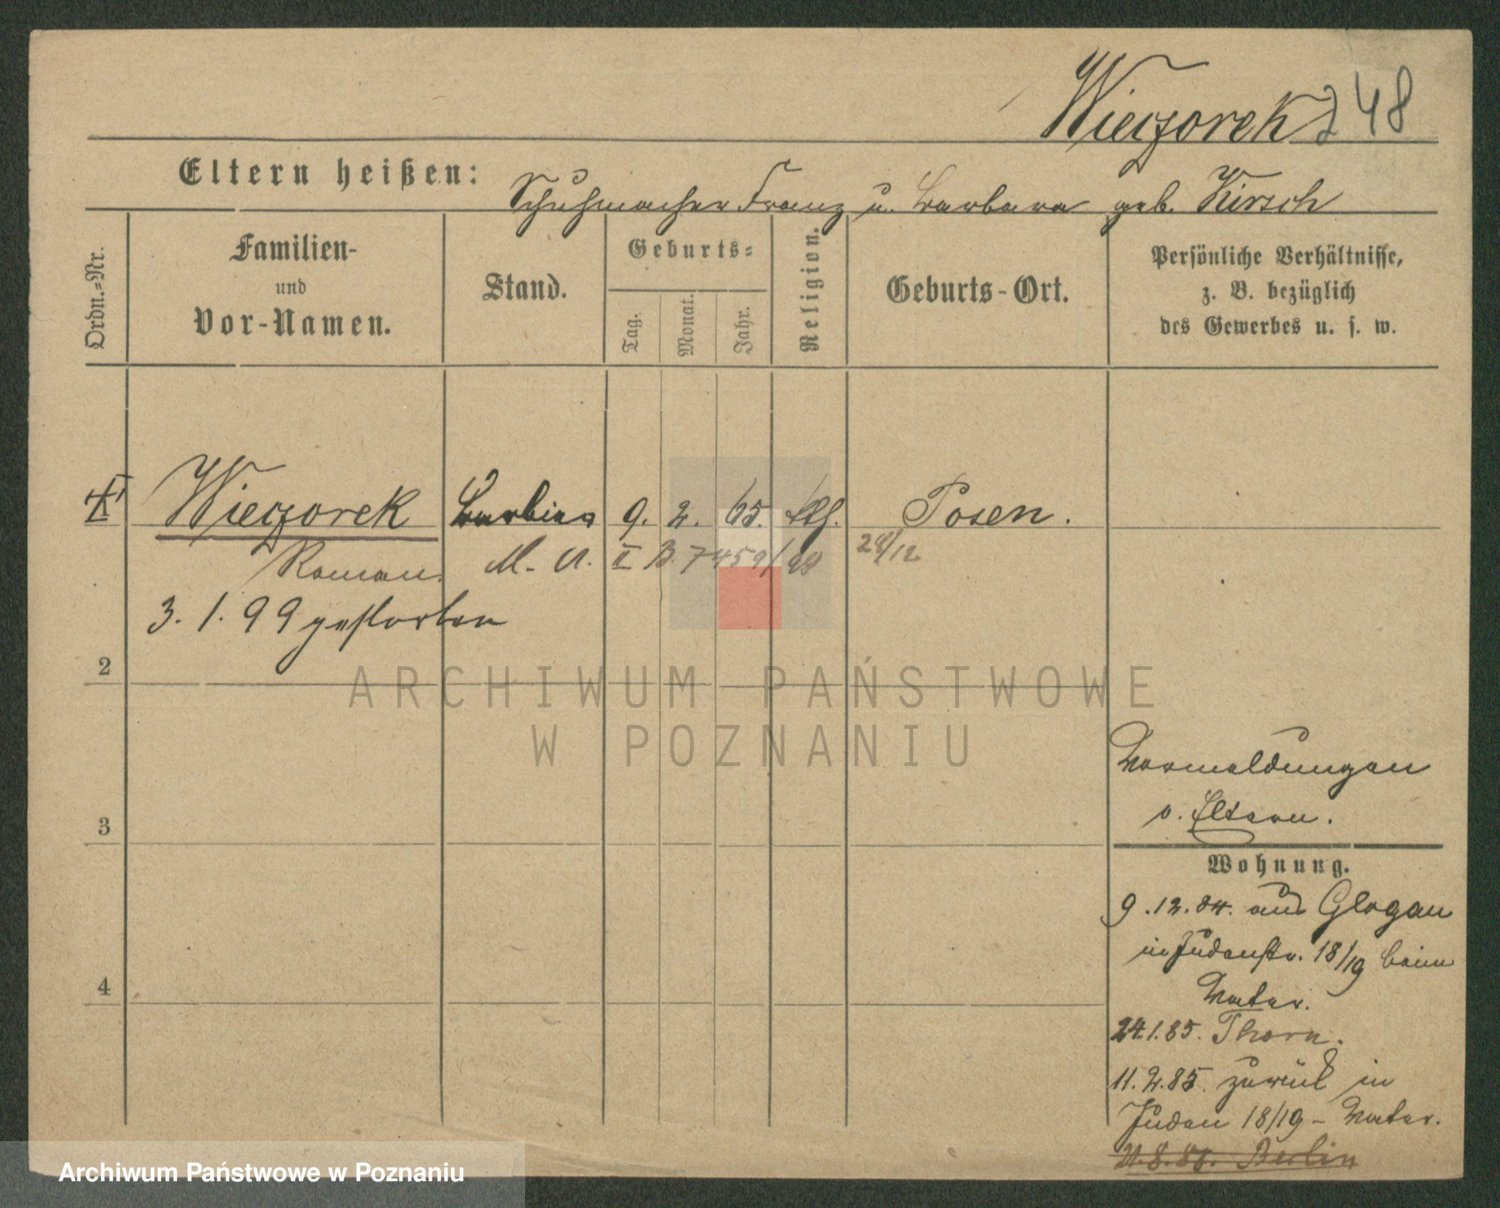 Wieczorek 248
Eltern heißen: Schuhmacher Franz u. Barbara geb. Kirsch
Ordn.=Nr.
Familien-
und
Vor-Namen.
Stand.
Geburts=
Tag.
Monat.
Jahr.
Religion.
Geburts-Ort.
Persönliche Verhältnisse,
z. B. bezüglich
des Gewerbes u. s. w.
Wieczorek Barbier 9. 2. 65. Posen.
Roman. M. A. II B. 7459/98 28/12
3. 1. 99 gestorben
2
3
4
Vormeldungen
v. Eltern.
Wohnung.
9.12.84. aus Glogau
in Judenstr. 18/19 beim
Vater.
24.1.85. Thorn.
11.2.85. zurück in
Juden 18/19 - Vater.
Berlin
ARCHIWUM PAŃSTWOWE
W POZNANIU
Archiwum Państwowe w Poznaniu